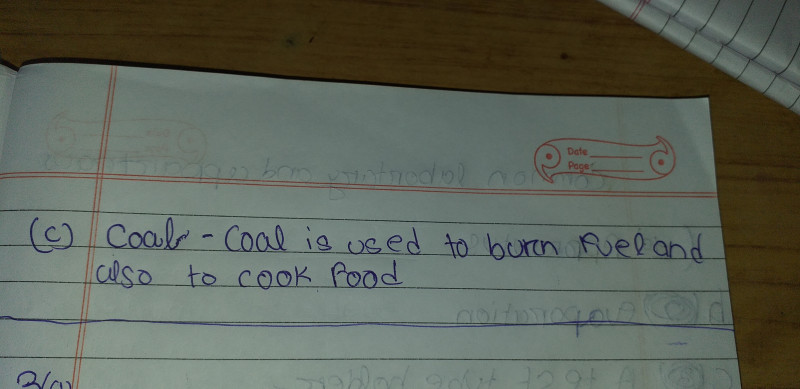 Date
Page
(c) Coal - Coal is used to burn fuel and
also to cook food
2(a)